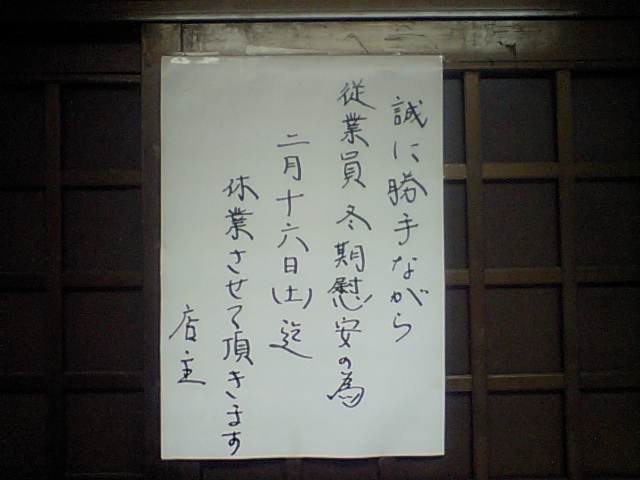 誠に勝手ながら
従業員冬期慰安の為
二月十六日(土)迄
休業させて頂きます
店主